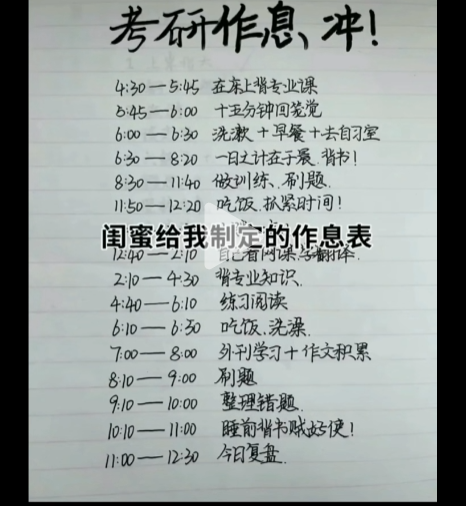 考研作息、冲!
4:30 — 5:45 在床上背专业课
5:45 — 6:00 十五分钟回笼觉
6:00 — 6:30 洗漱 + 早餐 + 去自习室
6:30 — 8:20 一日之计在于晨、背书!
8:30 — 11:40 做训练、刷题.
11:50 — 12:20 吃饭、抓紧时间!
闺蜜给我制定的作息表
12:40 — 2:10 自己看网课、翻译.
2:10 — 4:30 背专业知识.
4:40 — 6:10 练习阅读
6:10 — 6:50 吃饭、洗澡.
7:00 — 8:00 外刊学习 + 作文积累
8:10 — 9:00 刷题
9:10 — 10:00 整理错题.
10:10 — 11:00 睡前背书贼好使!
11:00 — 12:30 今日复盘.